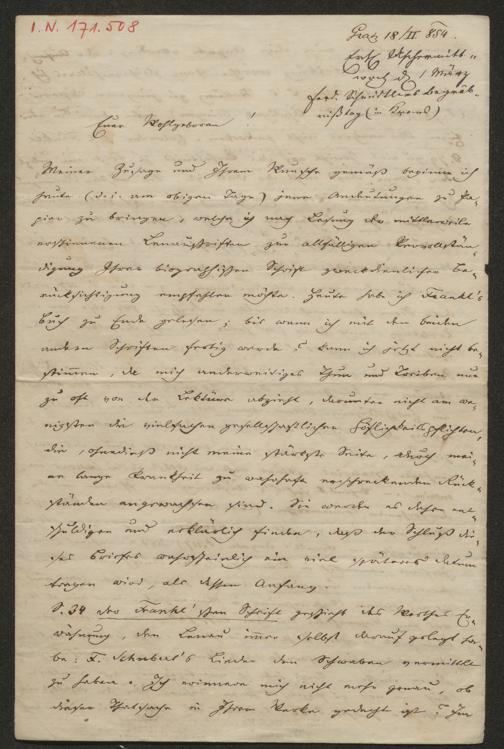 I.N. 171.508
Graz 18/II 854.
Erst Aschermitt-
woch d 1 März
Ferd. Begräb-
nißtag (in Krems)
Euer Wohlgeboren!
Meiner Zusage und Ihrem Wunsche gemäß beginne ich
heute (d.i. am obigen Tage) jene Andeutungen zu Pa-
pier zu bringen, welche ich nach Lesung der mittlerweile
erschienenen Lenauschriften zur allfälligen Vervollstän-
digung Ihrer biographischen Schrift zweckdienlicher Be-
rücksichtigung empfehlen möchte. Heute habe ich Frankl's
Buch zu Ende gelesen; bis wann ich mit den beiden
andern Schriften fertig werde? kann ich jetzt nicht be-
stimmen, da mich anderweitiges Thun und Treiben nur
zu oft von der Lektüre abzieht, darunter nicht am we-
nigsten die vielfachen gesellschaftlichen Höflichkeitspflichten,
die, ohnedieß nicht meine stärkste Seite, durch mei-
ne lange Krankheit zu wahrhaft erschreckenden Rück-
ständen angewachsen sind. Sie werden es daher ent-
schuldigen und erklärlich finden, daß der Schluß die-
ses Briefes wahrscheinlich ein viel späteres Datum
tragen wird, als dessen Anfang.
S. 34 der Frankl'schen Schrift geschieht des Werthes Er-
wähnung, den Lenau immer selbst darauf gelegt ha-
be: F. Schubert's Lieder den Schwaben vermittelt
zu haben. Ich erinnere mich nicht mehr genau, ob
dieser Thatsache in Ihrem Werke gedacht ist? Im